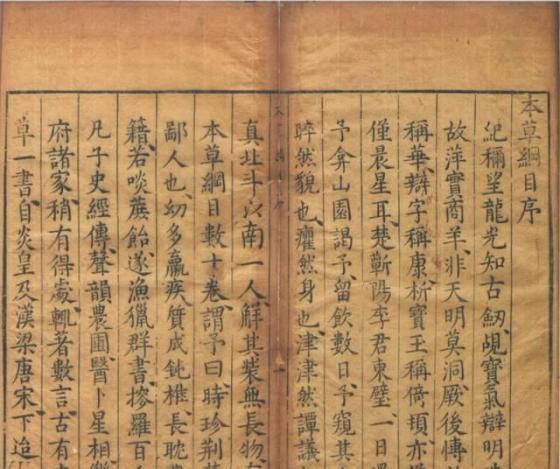 本草綱目序
紀稱望龍光知古劒覘寶氣辯明
故萍實商羊非天明莫洞厥後博
稱華辯字稱康析寶玉稱倚頓亦
僅晨星耳楚蘄陽李君東璧一日
予弇山園謁予留飲數日予窺其
睟然貌也癯然身也津津然譚議
真北斗以南一人觧其裝無長物
本草綱目數十卷謂予曰時珍荆
鄙人也幼多羸疾質成鈍椎長耽
籍若啖蔗飴遂漁獵群書搜羅百
凡子史經傳聲韻農圃醫卜星相
府諸家稍有得處輒著數言古有
草一書自炎皇及漢梁唐宋下迨